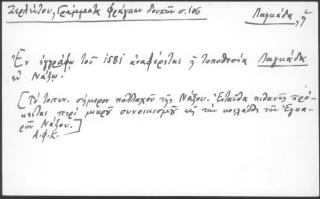 Ζερλέντου, Γράμματα Φράγκων δουκῶν σ. 106
Λαγκάδα, ἡ
Ἐν ἐγγράφῳ τοῦ 1581 ἀναφέρεται ἡ τοποθεσία Λαγκάδα
ἐν Νάξῳ.
[Τὸ τοπων. σήμερον πολλαχοῦ τῆς Νάξου. Ἐνταῦθα πιθανῶς πρό-
κειται περὶ μικροῦ συνοικισμοῦ εἰς τὴν κοιλάδα τῶν Ἐγκα-
ρῶν Νάξου.]
Δ.Φ.Κ.